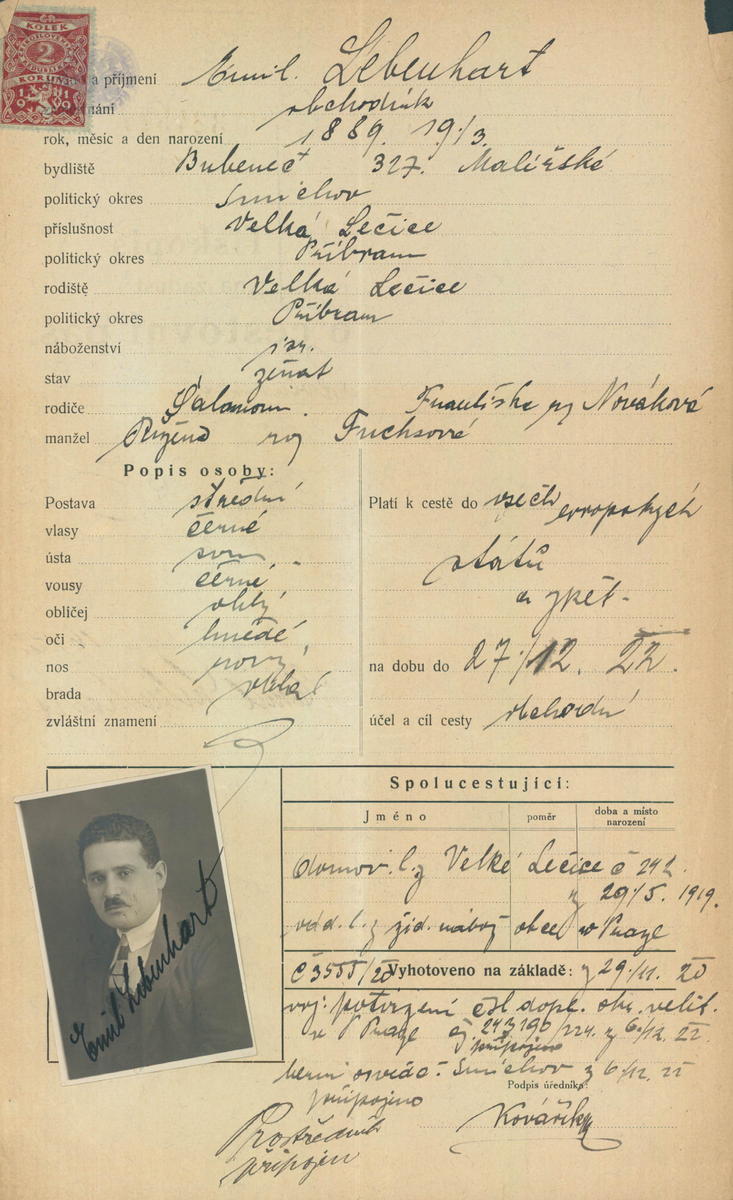 KOLEK
2
KORUNY
a příjmení Emil. Lebenhart
obchodník
rok, měsíc a den narození 1889. 19./3.
bydliště Bubeneč 327. Malířská
politický okres Smíchov
příslušnost Velká Lečice
politický okres Příbram
rodiště Velká Lečice
politický okres Příbram
náboženství isr.
stav ženat
rodiče Salamoun. Františka roz Nováková
manžel Růžena roz Fuchsová
Popis osoby:
Postava střední
vlasy černé
ústa
vousy černé
obličej oblý
oči hnědé
nos rovný
brada oblá
zvláštní znamení
Platí k cestě do všech evropských
států
a zpět -
na dobu do 27./12. 22.
účel a cíl cesty obchodní
Spolucestující:
Jméno poměr doba a místo narození
domov. l. z Velké Lečice č 242.
z 29./5. 1919.
odd. l. z žid. nábož obce v Praze
č 3555/20 Vyhotoveno na základě: z 29./11. 20
voj. potvrzení čsl. dopl. okr. velit.
v Praze čj. 243190/22 z 6./12. 22
připojeno
berní osvědč. Smíchov z 6/12. 22
připojeno
Podpis úředníka:
Kovařík
Prostředník
připojen
Emil Lebenhart